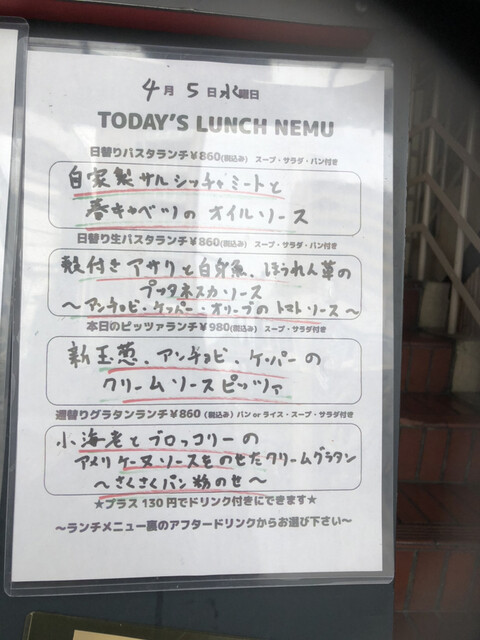 4月5日水曜日
TODAY'S LUNCH NEMU
日替りパスタランチ¥860(税込み) スープ・サラダ・パン付き
自家製サルシッチャミートと
春キャベツのオイルソース
日替り生パスタランチ¥860(税込み) スープ・サラダ・パン付き
殻付きアサリと白身魚、ほうれん草の
プッタネスカソース
〜アンチョビ・ケッパー・オリーブのトマトソース〜
本日のピッツァランチ¥980(税込み) スープ・サラダ付き
新玉葱、アンチョビ、ケッパーの
クリームソースピッツァ
週替りグラタンランチ¥860 (税込み)パン or ライス・スープ・サラダ付き
小海老とブロッコリーの
アメリケーヌソースをのせたクリームグラタン
〜さくさくパン粉のせ〜
★プラス130円でドリンク付きにできます★
〜ランチメニュー裏のアフタードリンクからお選び下さい〜